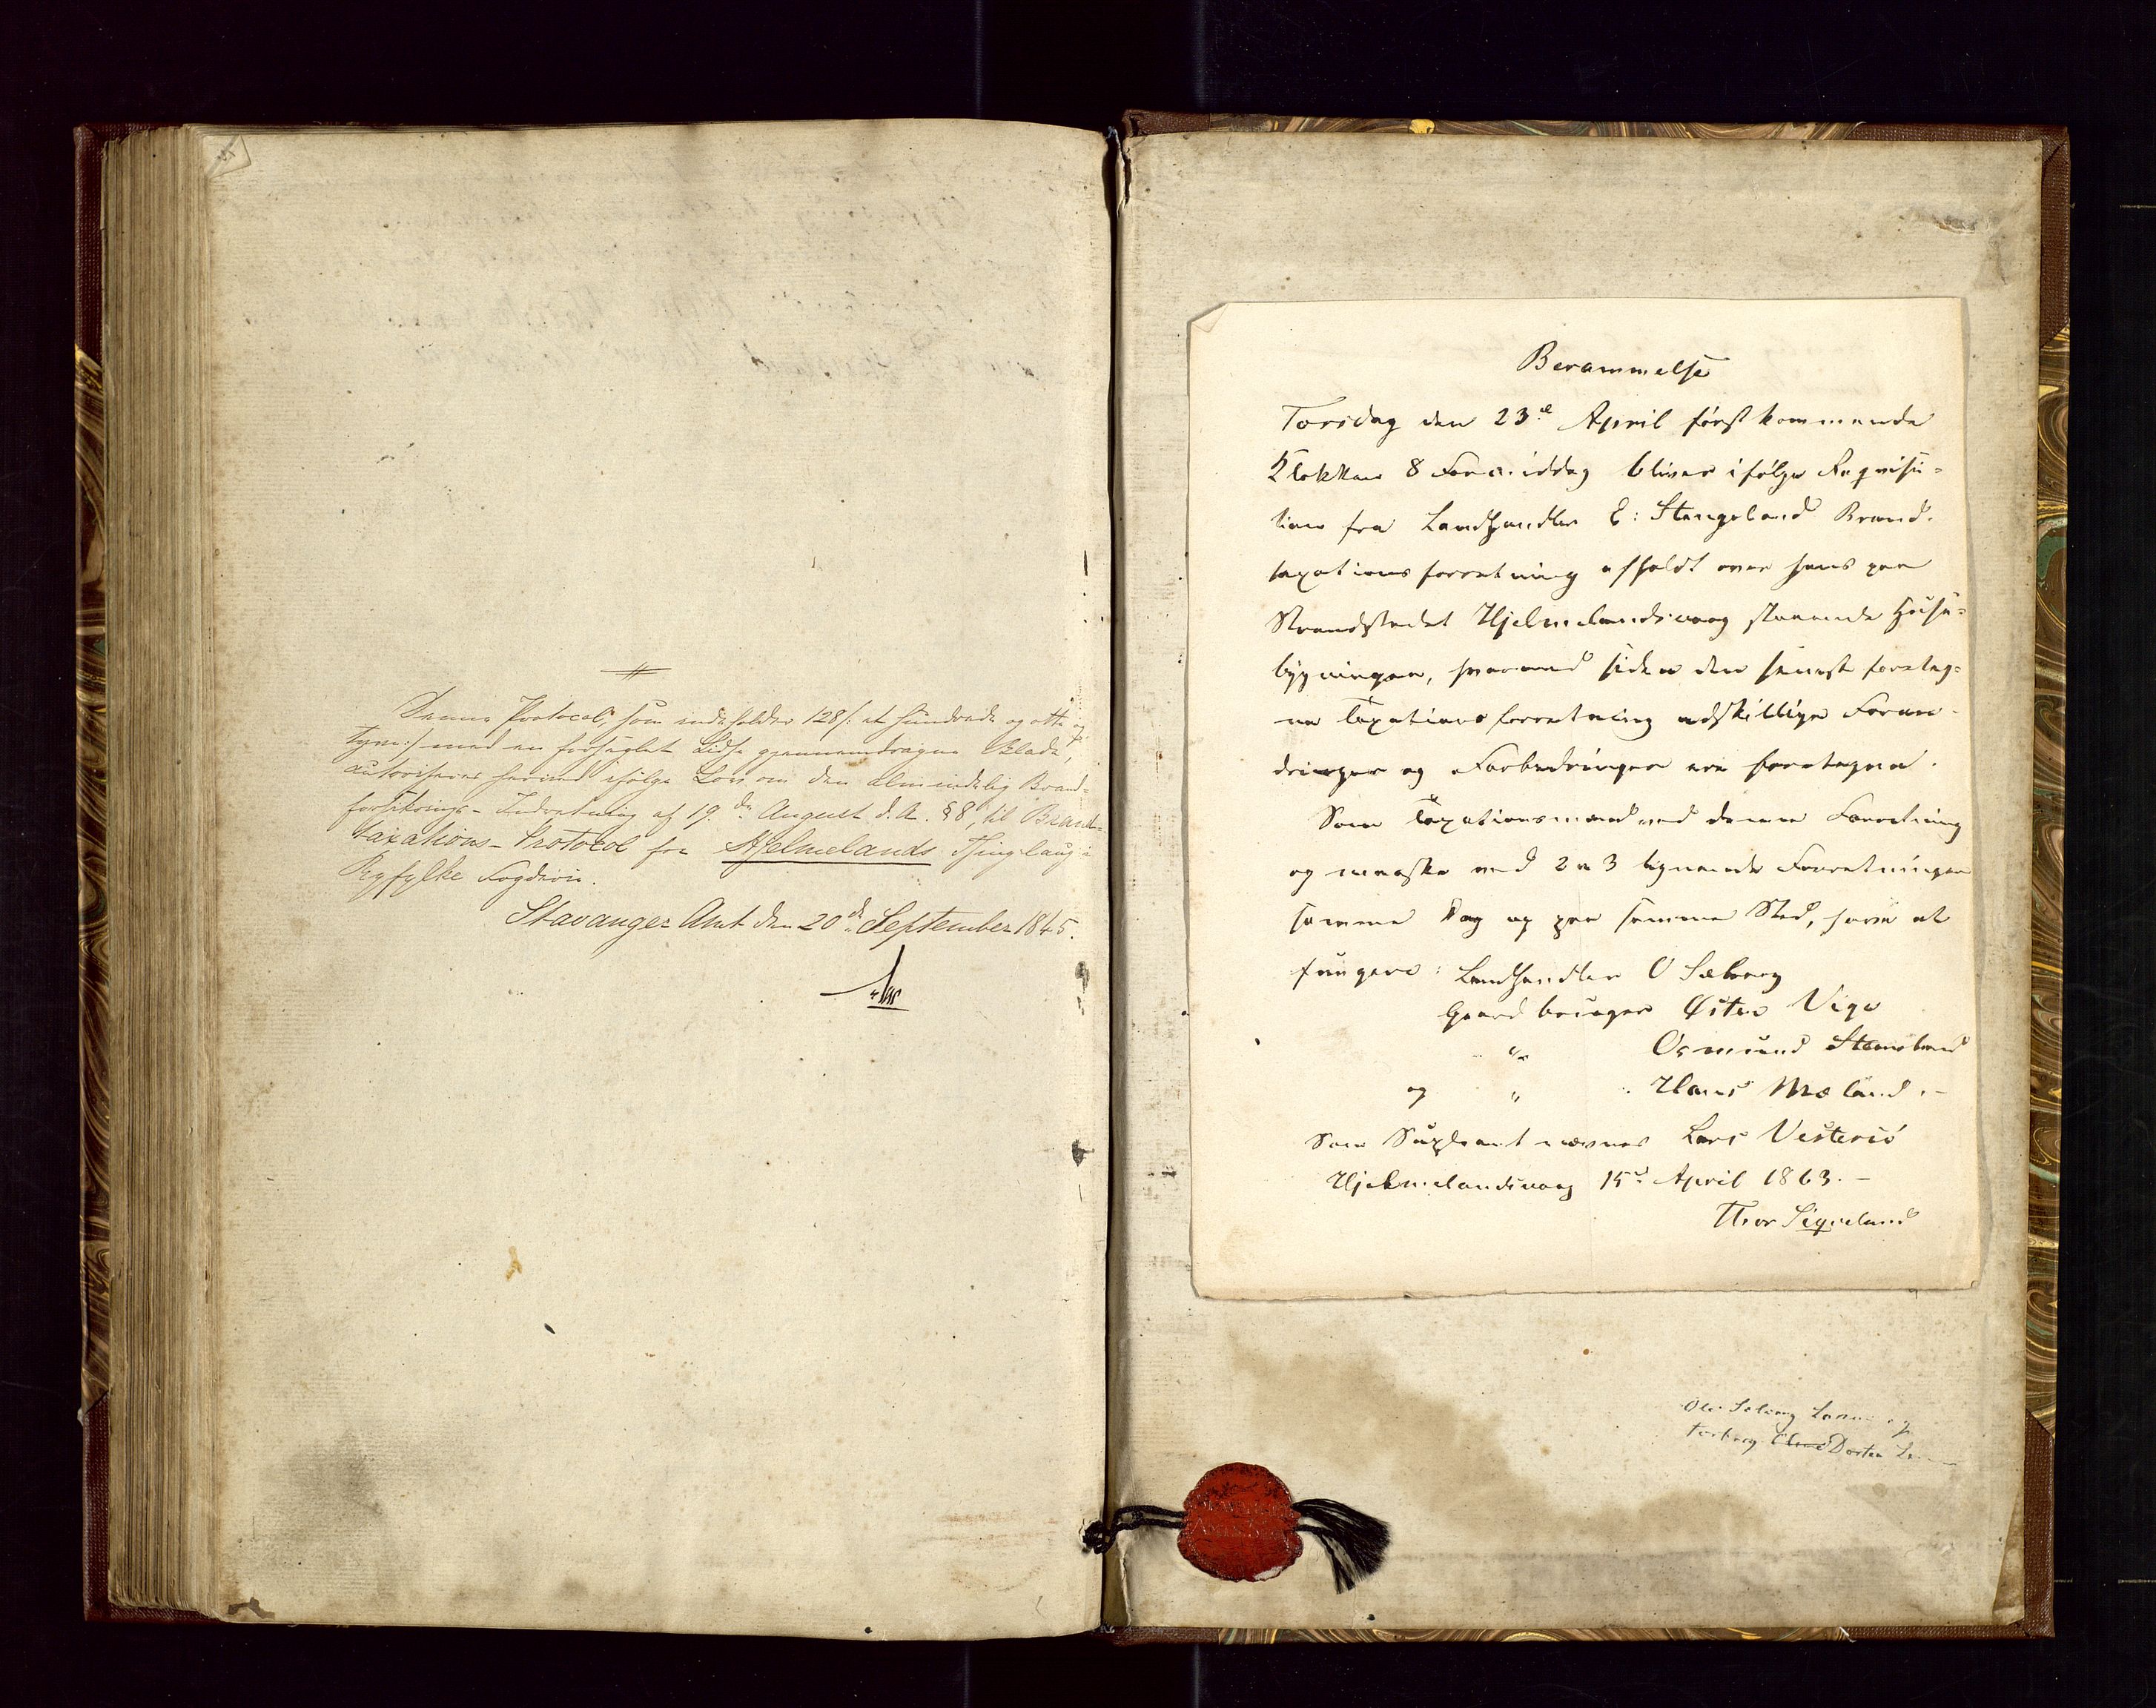 Denne Protocol, som indeholder 128/: et hundrede og otte og
tyve:/ med en forseglet Lidse gjennemdragne Blade,
autoriseres herved ifølge Lov om den almindelig Brand-
forsikrings-Indretning af 19.de August d. A. § 8, til Brand-
taxations-Protocol for Hjelmelands Thinglaug i
Ryfylke Fogderie.
Stavanger Amt den 20de September 1845.
Berammelse
Torsdag den 23de April først kommende
Klokken 8 Formiddag bliver ifølge Reqvisi-
tion fra Landhandler E: Stengeland Brand-
taxationsforretning afholdt over hans paa
Strandstedet Hjelmelandsvaag staaende Huse-
bygninger, hvorved siden den seneste foretag-
ne Taxationsforretning adskillige Foran-
dringer og Forbedringer ere foretagne.
Som Taxationsmænd ved denne Forretning
og maaske ved 2 a 3 lignende Forretninger
samme Dag og paa samme Sted, have at
fungere: Landhandler O Sæbøe
Gaardbruger Østen Vige
" Osmund Steensland
og " Hans Mæland.-
Som Supleant nævnes Lars Vestersø
Hjelmelandsvaag 15de April 1863.-
Thor Sigveland
Ole
Dorten